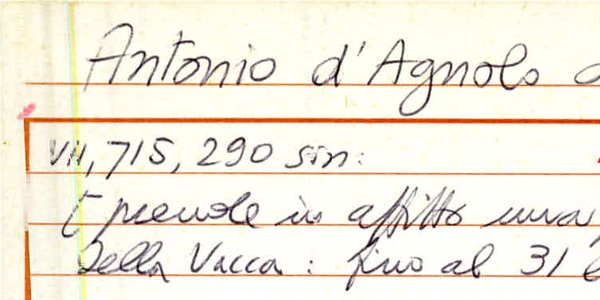 Antonio d'Agnolo
VII, 715, 290 sin:
prende in affitto una
della Vacca: fino al 31